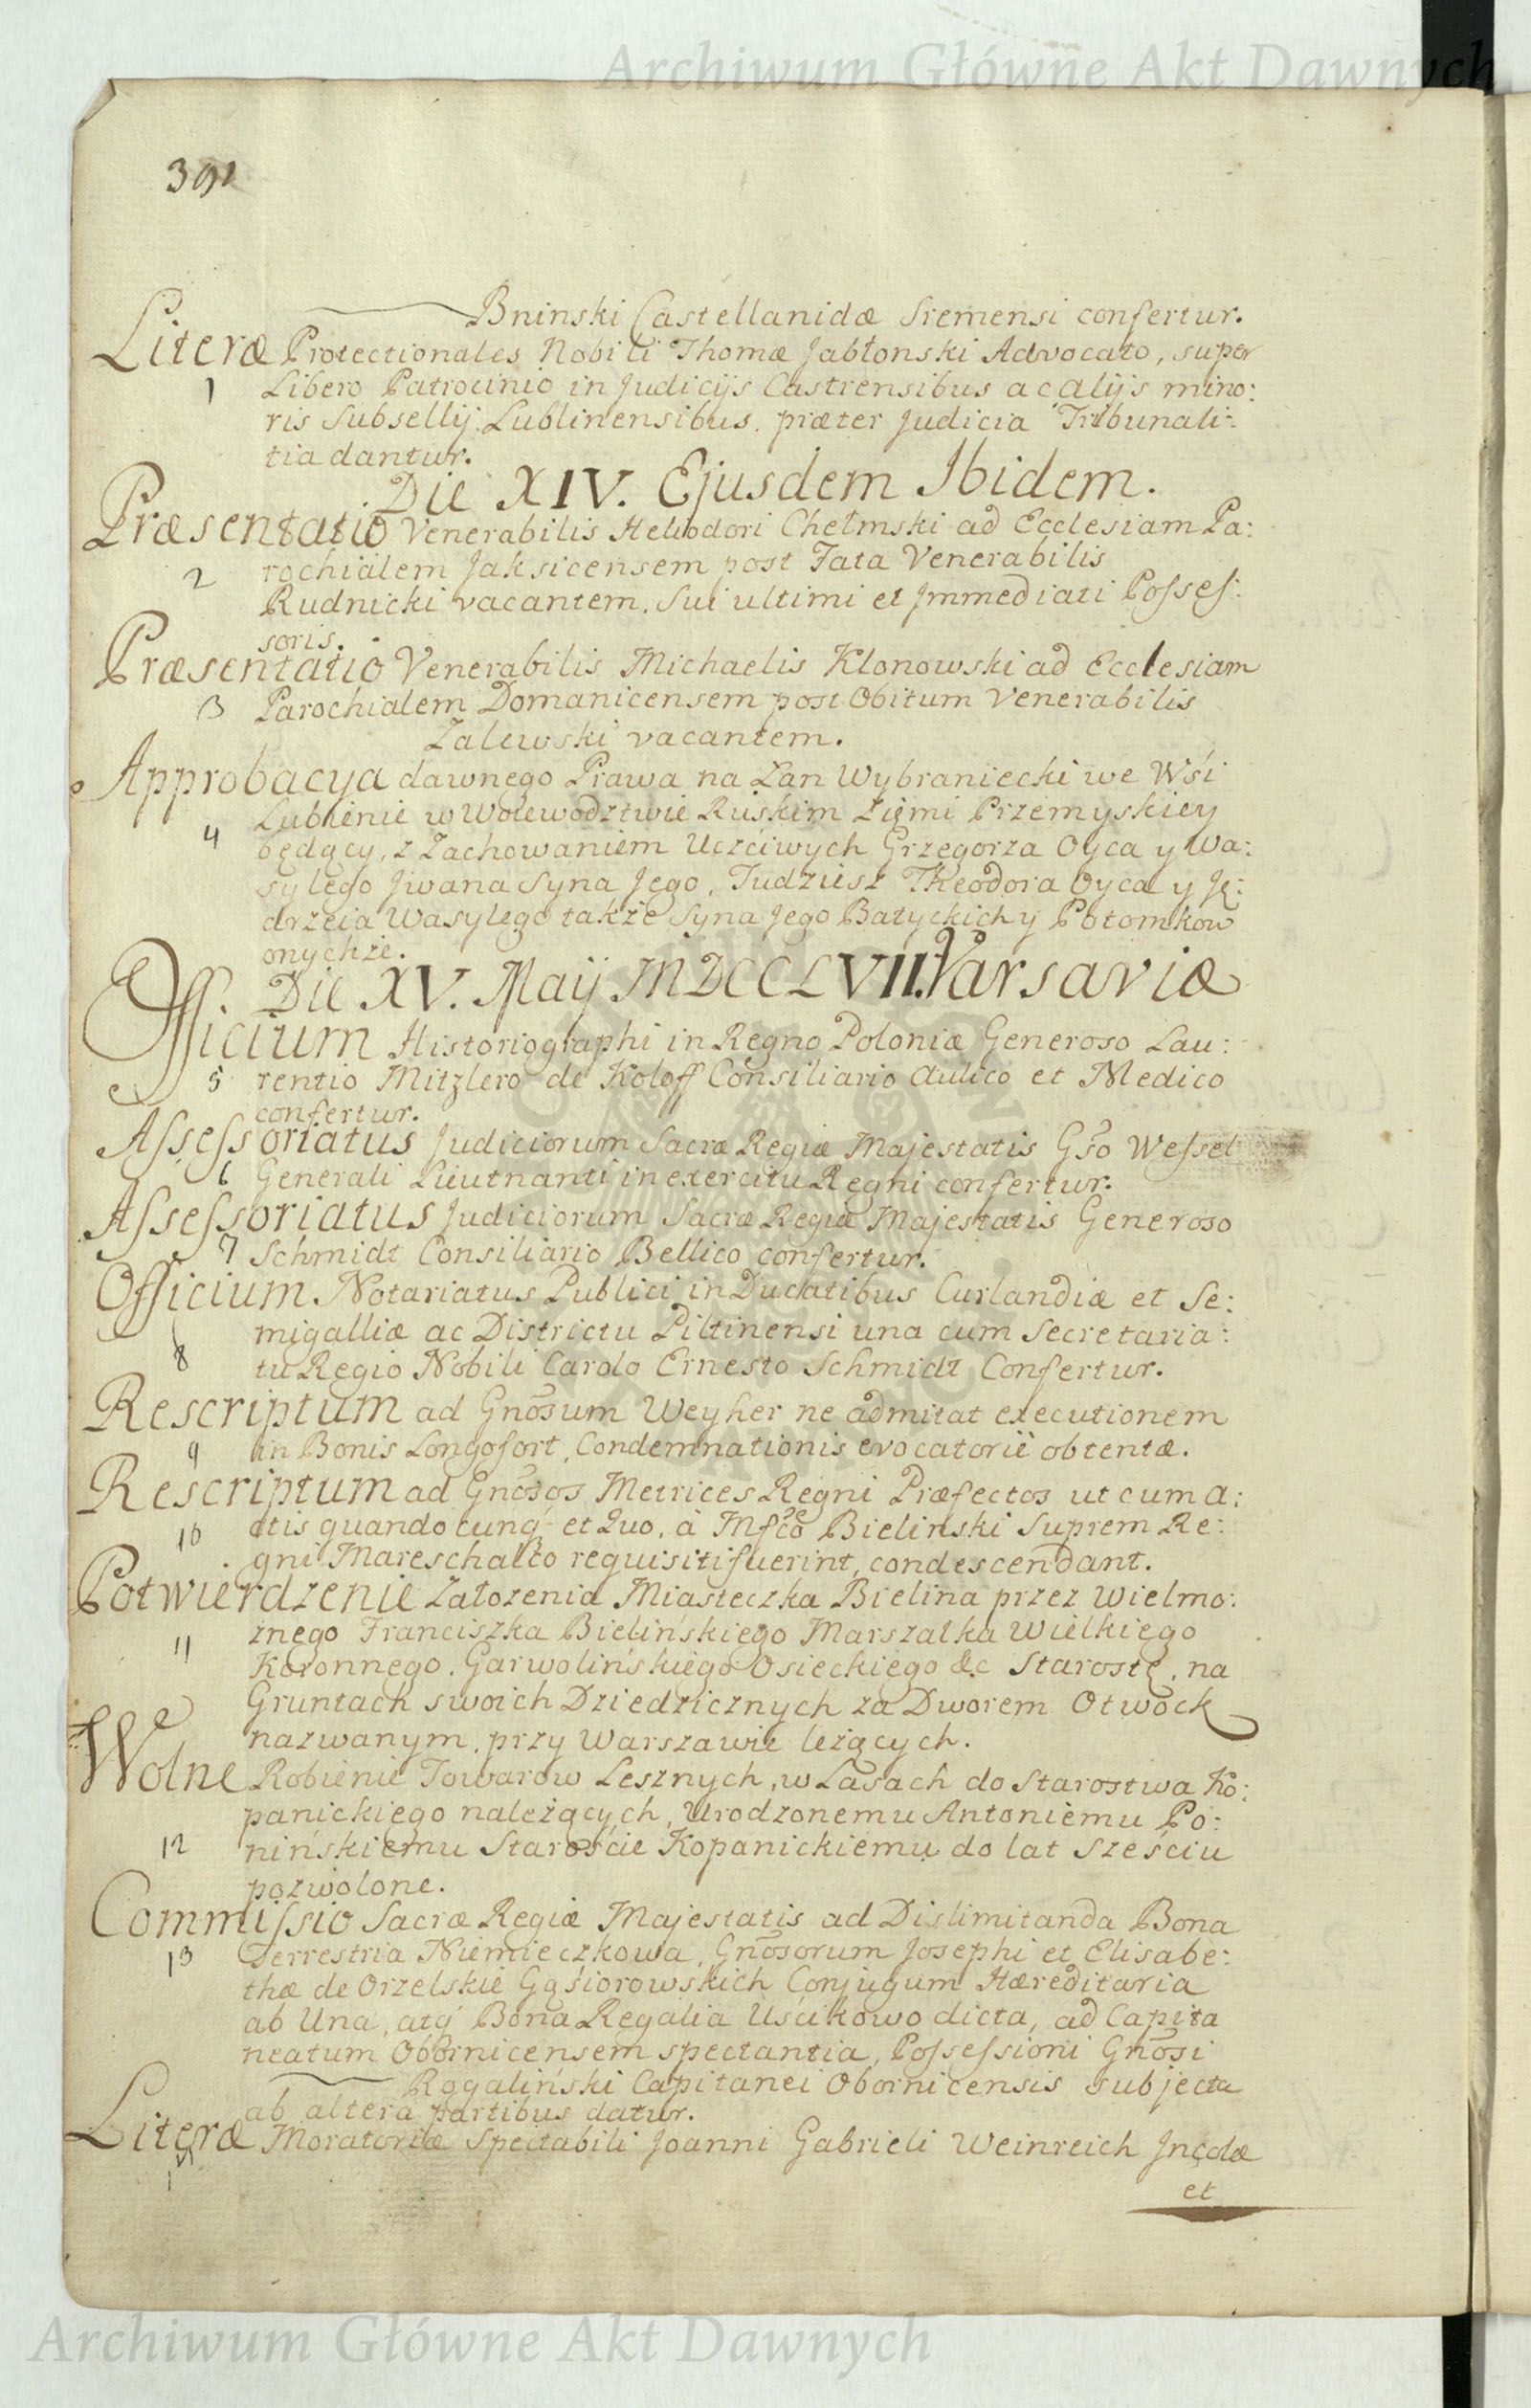 Archiwum Główne Akt Dawnych
391
Bninski Castellanidæ Sremensi confertur.
Literæ Protectionales Nobili Thomæ Jabłonski Advocato, super
1 Libero Patrocinio in Judicijs Castrensibus ac alijs mino:
ris Subsellij Lublinensibus, præter Judicia Tribunali:
tia dantur.
Die XIV. Ejusdem Ibidem.
Præsentatio Venerabilis Heliodori Chełmski ad Ecclesiam Pa:
2 rochialem Jaksicensem post Fata Venerabilis
Rudnicki vacantem, Sui ultimi et Immediati Posses:
soris.
Præsentatio Venerabilis Michaelis Klonowski ad Ecclesiam
3 Parochialem Domanicensem post Obitum Venerabilis
Zalewski vacantem.
Approbacya dawnego Prawa na Łan Wybraniecki we Wśi
4 Lubienie w Woiewodztwie Ruskim Ziemi Przemyskiey
będący, z Zachowaniem Uczciwych Grzegorza Oyca y Wa:
sylego Jwana Syna Jego, Tudziesz Theodora Oyca y Ję:
drzeia Wasylego także Syna Jego Batyckich y Potomkow
onychże.
Die XV. Maij MDCCLVII. Varsaviæ
Officium Historiographi in Regno Poloniæ Generoso Lau:
5 rentio Mitzlero de Koloff Consiliario Aulico et Medico
confertur.
Assessoriatus Judiciorum Sacræ Regiæ Majestatis Gso Wessel
6 Generali Lieutnanti in exercitu Regni confertur.
Assessoriatus Judiciorum Sacræ Regiæ Majestatis Generoso
7 Schmidt Consiliario Bellico confertur.
Officium Notariatus Publici in Ducatibus Curlandiæ et Se:
migalliæ ac Districtu Piltinensi una cum Secretaria:
8 tu Regio Nobili Carolo Ernesto Schmidt Confertur.
Rescriptum ad Gnosum Weyher ne admitat executionem
9 in Bonis Longofort, Condemnationis evocatorie obtentæ.
Rescriptum ad Gnosos Metrices Regni Præfectos ut cum a:
10 ctis quandocunq et Quo, à Mfco Bielinski Suprem Re:
gni Mareschalco requisiti fuerint, condescendant.
Potwierdzenie Załozenia Miasteczka Bielina przez Wielmo:
11 znego Franciszka Bielińskiego Marszałka Wielkiego
Koronnego, Garwolińskiego Osieckiego &c Starostę, na
Gruntach swoich Dziedzicznych za Dworem Otwock
nazwanym, przy Warszawie leżących.
Wolne Robienie Towarow Lesznych, w Lasach do Starostwa Ko:
panickiego należących, Urodzonemu Antoniemu Po:
12 nińskiemu Staroście Kopanickiemu do lat Sześciu
pozwolone.
Commissio Sacræ Regiæ Majestatis ad Dislimitanda Bona
13 Terrestria Niemieczkowa, Gnosorum Josephi et Elisabe:
thæ de Orzelskie Gąsiorowskich Conjugum Hæreditaria
ab Una, atq Bona Regalia Uścikowo dicta, ad Capita
neatum Obornicensem spectantia, Possessioni Gnosi
Rogaliński Capitanei Obornicensis subjecta
ab altera partibus datur.
Literæ Moratoriæ Spectabili Joanni Gabrieli Weinreich Incolæ
et
Archiwum Główne Akt Dawnych